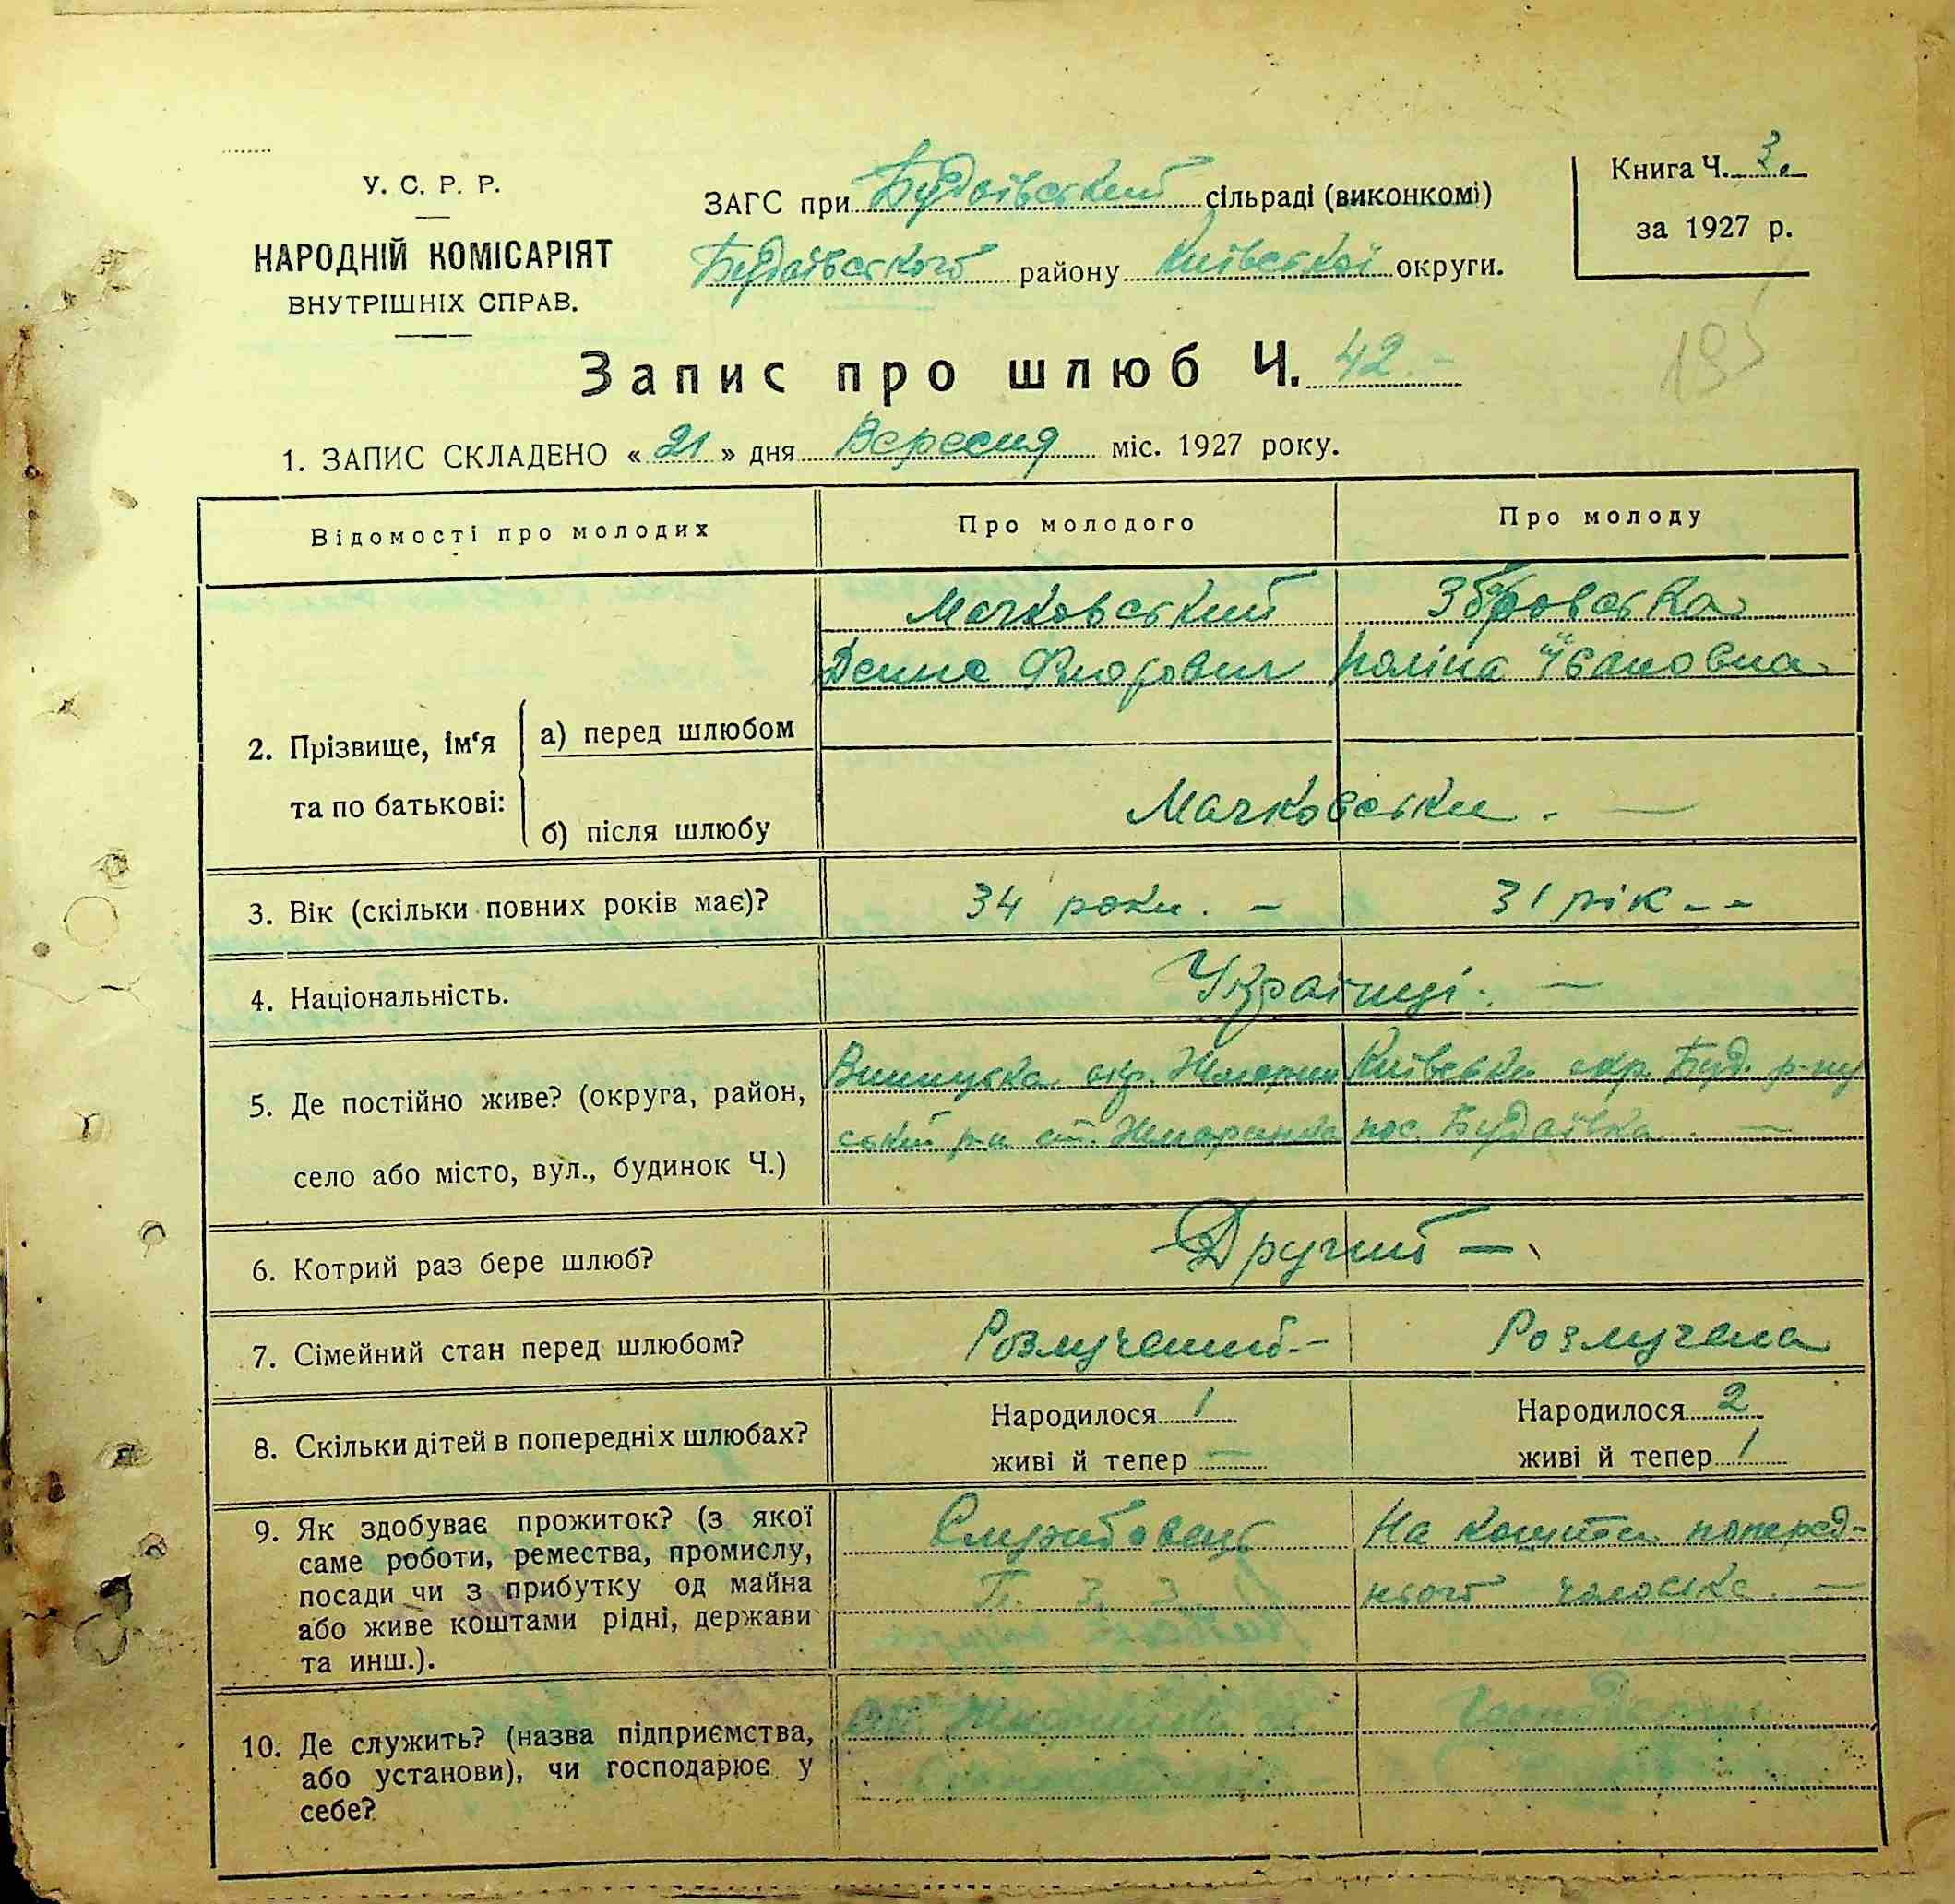 У. С. Р. Р.
НАРОДНІЙ КОМІСАРІЯТ
ВНУТРІШНІХ СПРАВ.
ЗАГС при Будаївський сільраді (виконкомі)
Будаївського району Київської округи.
Книга Ч. 3.
за 1927 р.
195
Запис про шлюб Ч. 42. -
1. ЗАПИС СКЛАДЕНО « 21 » дня Вересня міс. 1927 року.
Відомості про молодих
Про молодого
Про молоду
2. Прізвище, ім‘я та по батькові:
а) перед шлюбом
Мачковський
Денис Федорович
Збровська
Поліна Івановна
б) після шлюбу
Мачковськи. —
3. Вік (скільки повних років має)?
34 роки. -
31 рік - -
4. Національність.
Українці. —
5. Де постійно живе? (округа, район,
село або місто, вул., будинок Ч.)
Винницька окр. Жмерин
ський р-н ст. Жмеринка
Київська окр. Буд. р-ну
пос. Будаївка. —
6. Котрий раз бере шлюб?
Другий —
7. Сімейний стан перед шлюбом?
Розлучений. -
Розлучена
8. Скільки дітей в попередніх шлюбах?
Народилося 1
живі й тепер —
Народилося 2
живі й тепер 1
9. Як здобуває прожиток? (з якої
саме роботи, ремества, промислу,
посади чи з прибутку од майна
або живе коштами рідні, держави
та инш.).
Службовець
П. З. З.
На кошти поперед-
нього чоловіка. —
10. Де служить? (назва підприємства,
або установи), чи господарює у
себе?
ст. Жмеринка